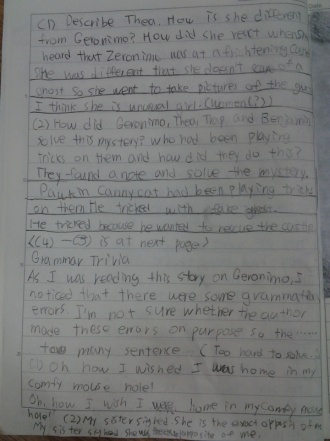 (1) Describe Thea. How is she different
from Geronimo? How did she react when she
heard that Zeronimo was at a frightening
She was different that she doesn't of a
ghost so she went to take pictures of the
I think she is unusual girl. (woman(?))
(2) How did Geronimo, Thea, Trap and Benjamin
solve this mystery? who had been playing
tricks on them and how did they do this?
They found a note and solve the mystery.
cat had been playing tricks
on them. He tricked with fake ghost.
He tricked because he wanted to the
((4) - (5) is at next page)
Grammar Trivia
As I was reading this story on Geronimo, I
noticed that there were some grammatical
errors. I'm not sure whether the author
made these errors on purpose so the ......
too many sentence (Too hard to solve
(1) Oh how I wished I was home in my
comfy mouse hole!
Oh, how I wish I was home in my comfy mouse
hole! (2) My sister sighed She is the exact opposite of me
My sister sighed She opposite of me.